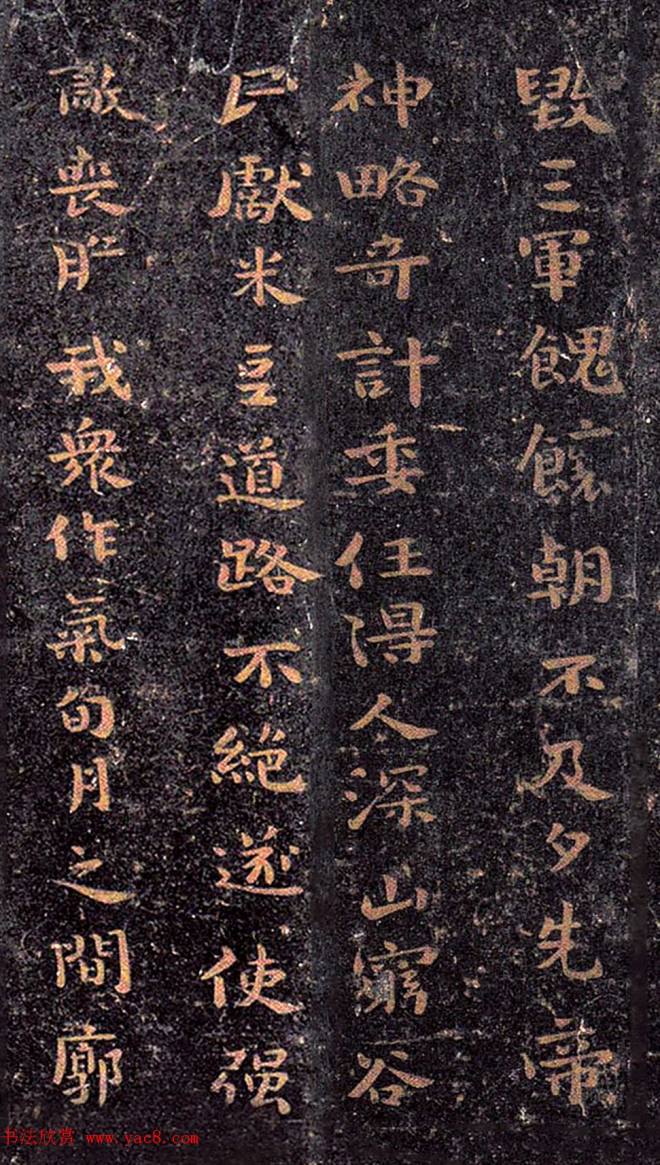 毀三軍餽饟朝不及夕先帝
神略奇計委任得人深山窮谷
民獻米豆道路不絕遂使强
敵喪膽我衆作氣旬月之間廓
书法欣赏 www.yac8.com